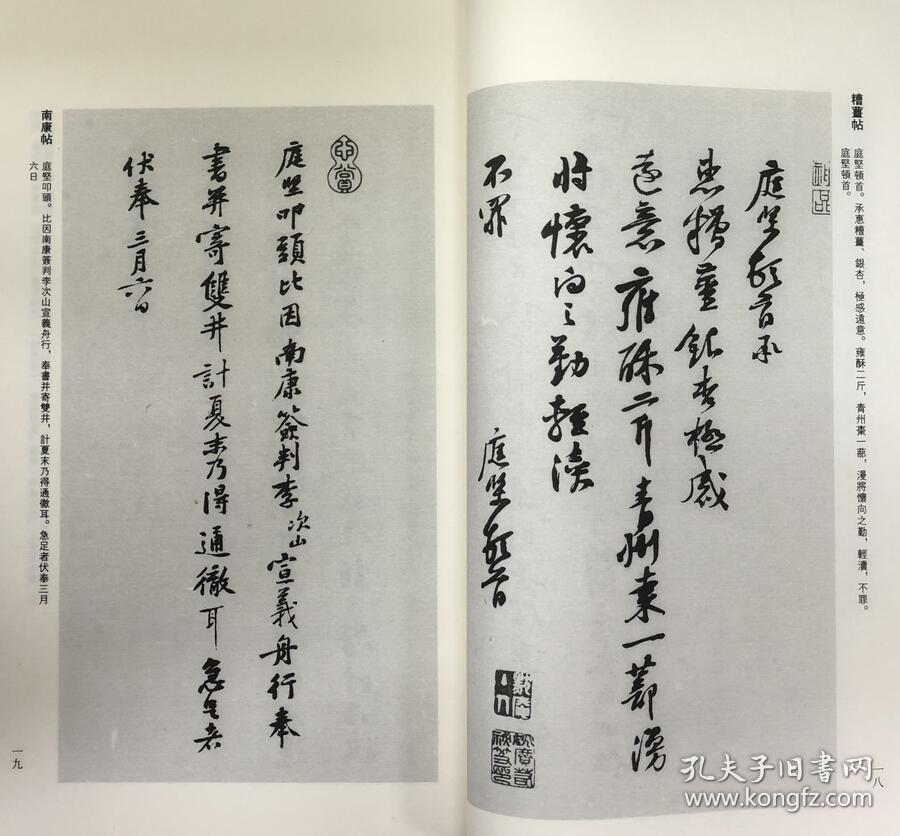 糟薑帖
庭堅頓首。承惠糟薑、銀杏，極感遠意。雍酥二斤，青州棗一蔀，漫將懷向之勤，輕瀆，不罪。
庭堅頓首。
庭堅頓首承
惠糟薑銀杏極感
遠意雍酥二斤青州棗一蔀漫
將懷向之勤輕瀆
不罪
庭堅頓首
一八
南康帖
庭堅叩頭。比因南康簽判李次山宣義舟行，奉書并寄雙井，計夏末乃得通徹耳。急足者伏奉三月
六日
庭堅叩頭比因南康簽判李次山宣義舟行奉
書并寄雙井計夏末乃得通徹耳急足者
伏奉三月六日
一九
孔夫子旧书网
www.kongfz.com